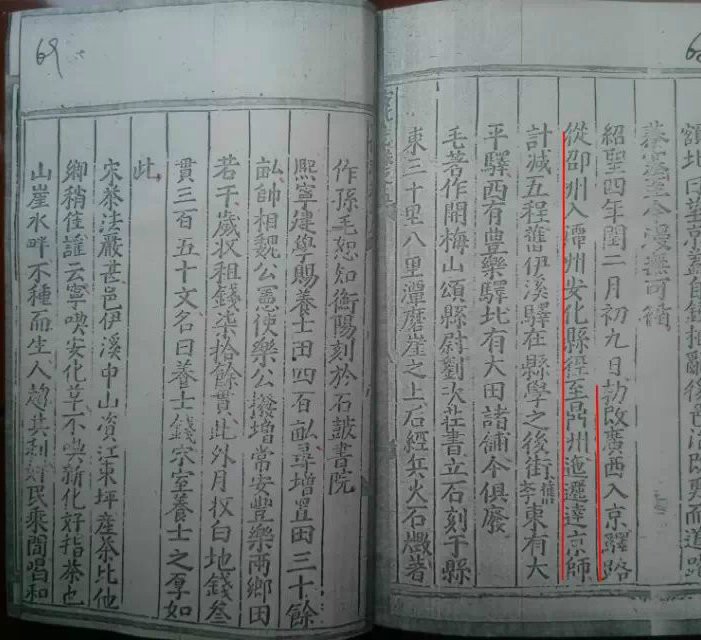 額北曰望京蓋自錢抽亂後邑治改易而道路
至今漫無可循
紹聖四年閏二月初九日勅改廣西入京驛路
從邵州入潭州安化縣徑至鼎州迤邐達京師
計減五程舊伊溪驛在縣學之後街東有大
平驛西有豊樂驛北有大田諸鋪今俱廢
毛著作開梅山頌縣尉劉次莊書立石刻于縣
東三十里八里潭磨崖之上石經兵火石燬著
69
作孫毛恕知衡陽刻於石鼓書院
熙寧建學賜養士田四百畝尋增置田三十餘
畝帥相魏公憲使樂公撥增常安豐樂兩鄉田
若干歲收租錢柒拾餘貫此外月收白地錢叁
貫三百五十文名曰養士錢宋室養士之厚如
此
宋茶法嚴甚邑伊溪中山資江東坪產茶比他
鄉稍佳諺云寧喫安化草不喫新化好指茶也
山崖水畔不種而生人趨其利奸民乘間唱和